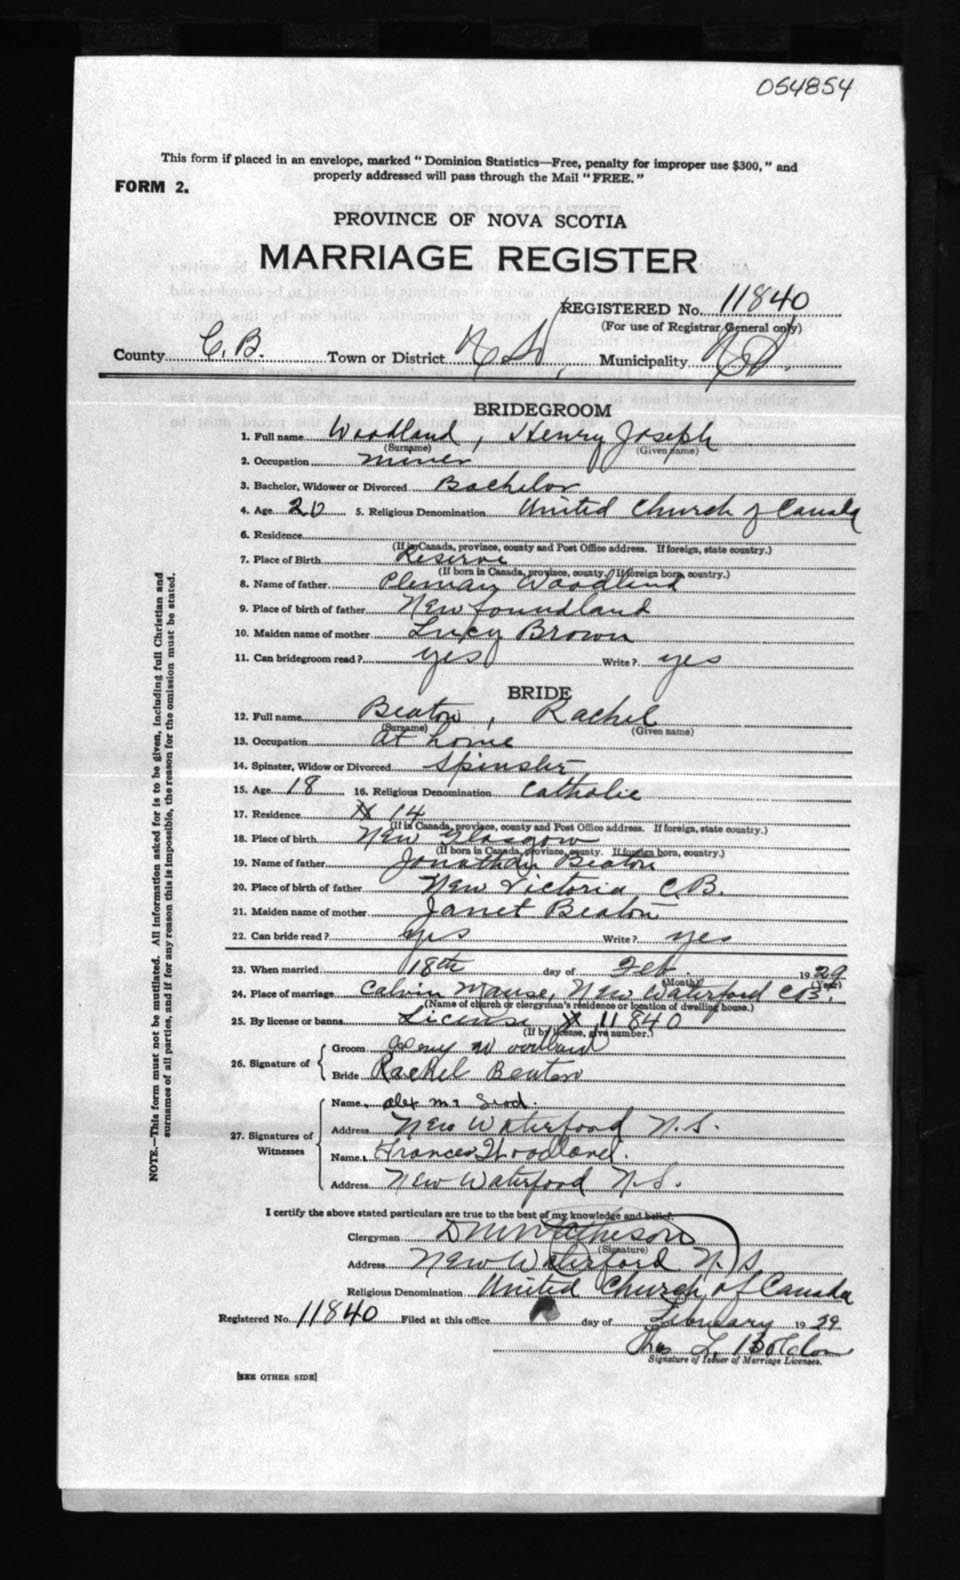 054854
This form if placed in an envelope, marked "Dominion Statistics—Free, penalty for improper use $300," and
properly addressed will pass through the Mail "FREE."
FORM 2.
PROVINCE OF NOVA SCOTIA
MARRIAGE REGISTER
REGISTERED No. 11840
(For use of Registrar General only)
County C.B. Town or District Municipality
BRIDEGROOM
1. Full name Woodland, Henry Joseph
(Surname) (Given name)
2. Occupation miner
3. Bachelor, Widower or Divorced Bachelor
4. Age 20 5. Religious Denomination United Church of Canada
6. Residence
(If in Canada, province, county and Post Office address. If foreign, state country.)
7. Place of Birth Reserve
(If born in Canada, province, county. If foreign born, country.)
8. Name of father Woodland
9. Place of birth of father Newfoundland
10. Maiden name of mother Lucy Brown
11. Can bridegroom read? yes Write? yes
BRIDE
12. Full name Beaton, Rachel
(Surname) (Given name)
13. Occupation at home
14. Spinster, Widow or Divorced Spinster
15. Age 18 16. Religious Denomination Catholic
17. Residence 14
(If in Canada, province, county and Post Office address. If foreign, state country.)
18. Place of birth New Glasgow
(If born in Canada, province, county. If foreign born, country.)
19. Name of father Jonathan Beaton
20. Place of birth of father New Victoria C.B.
21. Maiden name of mother Janet Beaton
22. Can bride read? yes Write? yes
23. When married 18th day of Feb. 1929
(Month) (Year)
24. Place of marriage Calvin Manse, New Waterford C.B.
(Name of church or clergyman's residence or location of dwelling house.)
25. By license or banns License 11840
(If by license, give number.)
26. Signature of
Groom Henry Woodland
Bride Rachel Beaton
27. Signatures of Witnesses
Name Alex
Address New Waterford N.S.
Name Frances Woodland.
Address New Waterford N.S.
I certify the above stated particulars are true to the best of my knowledge and belief.
Clergyman D M Matheson
(Signature)
Address New Waterford N.S
Religious Denomination United Church of Canada
Registered No. 11840 Filed at this office day of February 1929
Thos L.
Signature of Issuer of Marriage Licenses.
[SEE OTHER SIDE]
NOTE.—This form must not be mutilated. All information asked for is to be given, including full Christian and
surnames of all parties, and if for any reason this is impossible, the reason for the omission must be stated.